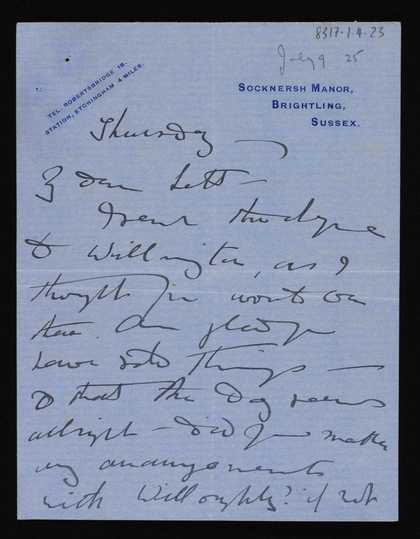 8317-1-4-23
July 9 25
TEL. ROBERTSBRIDGE 18.
STATION, ETCHINGHAM 4 MILES.
SOCKNERSH MANOR,
BRIGHTLING,
SUSSEX.
Thursday
My dear Lett –
I sent the
to Willington, as I
thought you wont be
there. Am glad you
have
that the Dog seems
allright – did you make
any arrangements
with Willoughby? if not